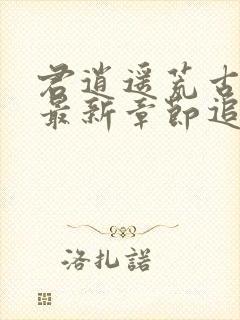 君逍遥荒古
最新章節追
洛扎諾